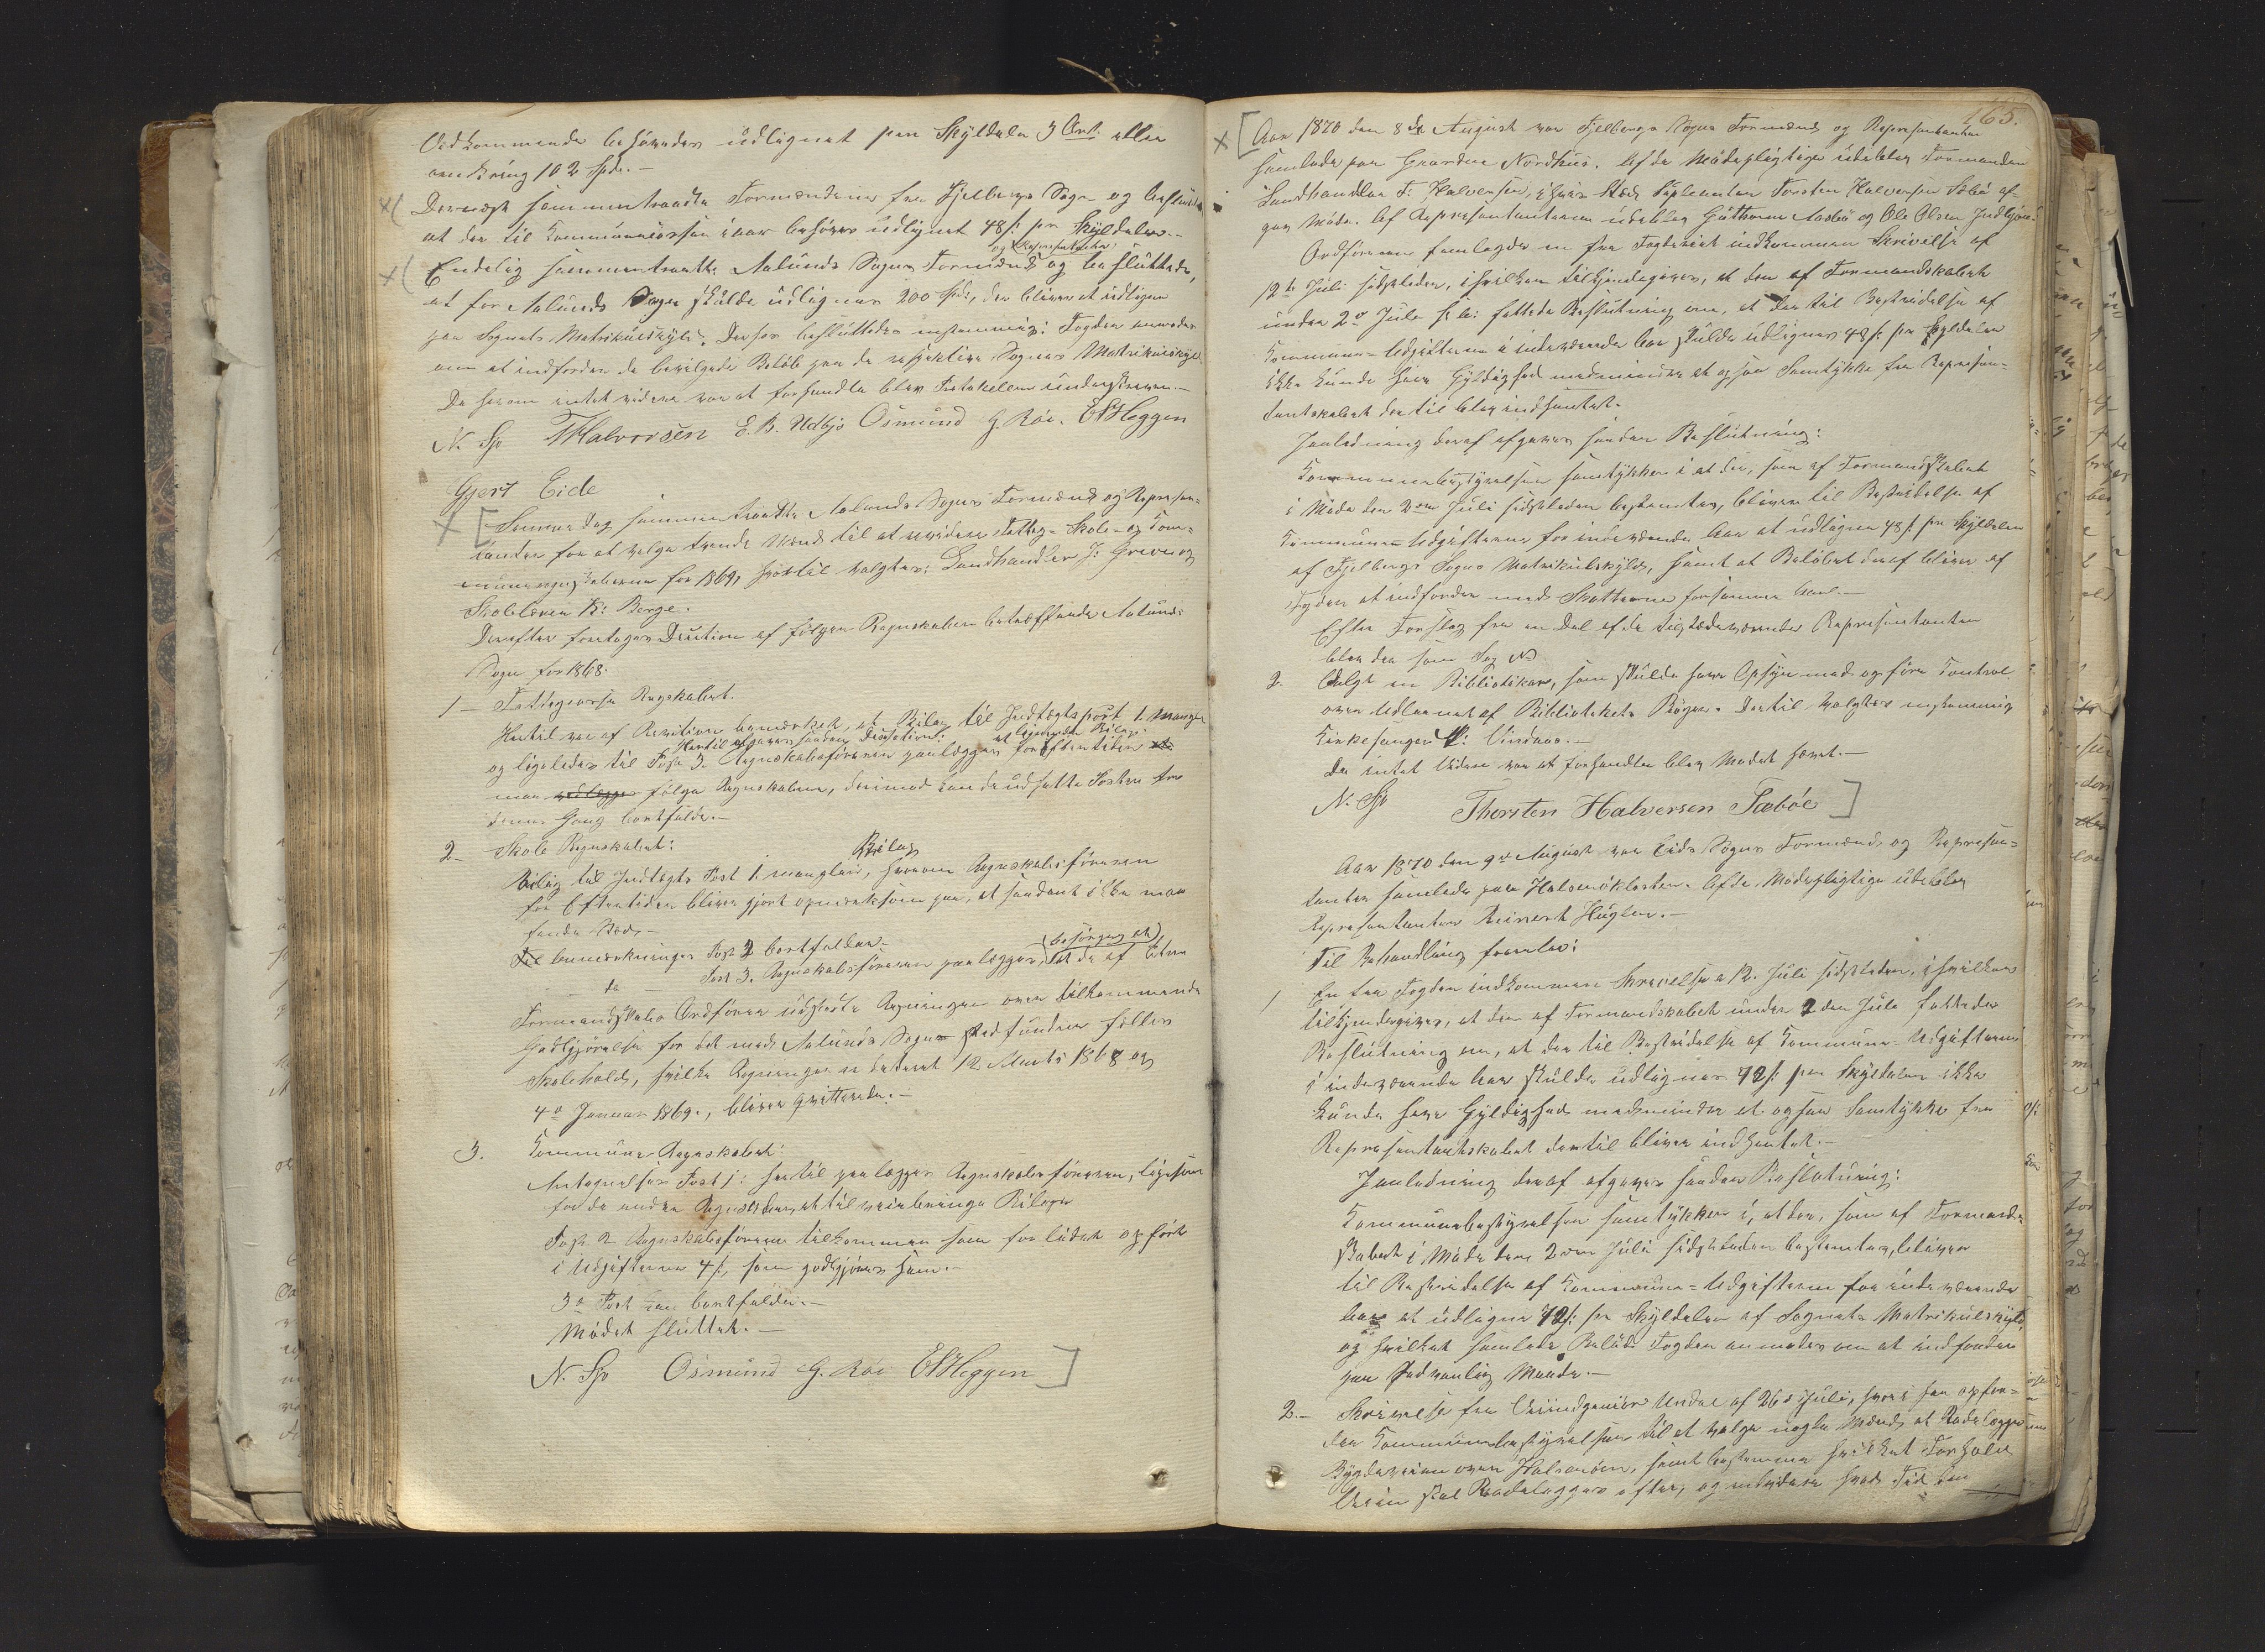 Vedkommende behøvedes udlignet paa Skyldalen 3 Ort eller
omkring 102 Spd. —
Dernæst sammentraadte Formændene fra Fjelbergs Sogn og besluttede
at der til Kommunekassen i aar behøves udlignet 48 s: pr Skyldaler. —
og Repræsentanter
Endelig sammentraadte Ølunds Sogns Formænd og besluttede,
at for Ølunds Sogn skulde udlignes 200 Spd:, der bliver at udligne
paa Sognets Matrikulskyld. Derhos besluttedes enstemmig: Fogden anmodes
om at indfordre de bevilgede Beløb paa de respektive Sognes Matrikulskyld
Da herom intet videre var at forhandle blev Protokollen underskreven. —
N. Sjo THalvorsen E. B. Udbjo Osmund G. Röe. EHHeggen
Gjert Eide
Samme Dag sammentraadte Ølunds Sogns Formænd og Repræsen-
tanter for at vælge tvende Mænd til at revidere Fattig- Skole- og Kom-
muneregnskaberne for 1869, hvortil valgtes: Landhandler J: Green og
Skolelærer K: Berge.
Derefter foretoges Decition af følgen Regnskaber betræffende Ølunds
Sogn for 1868.
1 — Fattigvæsens Regnskabet.
Hertil var af Revisionen bemærket, at Bilag til Indtægtspost 1. mangler
Hertil afgaves saadan Decition: at lignende Bilag
og ligeledes til Post 3. Regnskabsføreren paalægges for Eftertiden at
maa vedlægge følge Regnskaberne, derimod kan de udsatte Poster for
denne Gang bortfalde. —
2 — Skole Regnskabet:
Bilag
Bilag til Indtægts Post 1. mangler, hvorom Regnskabsføreren
for Eftertiden bliver gjort opmærksom paa, at saadant ikke maa
finde Sted —
Til bemærkninger Post 2 bortfalder. —
(besørges at)
— do — Post 3. Regnskabsføreren paalægges, at de af Etne
Formandskabs Ordfører udstedte Regninger over tilkommende
Godtgjørelse for det med Ølunds Sogn stedfundne fælles
Skolehold, hvilke Regninger er dateret 12 Marts 1868 og
4de Januar 1869., bliver qvitterede. —
3. Kommune Regnskabet:
Antegnelses Post 1: hertil paalægges Regnskabsføreren, ligesom
for de andre Regnskaber, at tilveiebringe Bilage
Post 2 Regnskabsføreren tilkommer som for lidet opført
i Udgifterne 4 s, som godtgjøres ham. —
3de Post kan bortfalde. —
Mødet sluttet. —
N. Sjo Osmund G. Röe EHHeggen
165.
Aar 1870 den 8de August var Fjelbergs Sogns Formænd og Repræsentanter
samlede paa Gaarden Nordhuus. Af de Mødepligtige udeblev Formanden
Landhandler T. Halvorsen, i hvis Sted Suplianten Torsten Halversen Tæbø af-
gav Møde. Af Repræsentanterne udeblev Guthorm Aasbø og Ole Olsen Indbjoe.
Ordføreren fremlagde en fra Fogderiet indkommen Skrivelse af
12te Juli sidstleden, i hvilken tilkjendegives, at den af Formandskabet
under 2den Juli s. l. fattede Beslutning om, at der til Bestridelse af
Kommune-Udgifterne i indeværende Aar skulde udlignes 48 s pr Skyldaler
ikke kunde have Gyldighed medmindre at ogsaa Samtykke fra Repræsen-
tantskabet dertil blev indhentet.
I anledning deraf afgaves saadan Beslutning:
Kommunebestyrelsen samtykker i at der, som af Formandskabet
i Møde den 2den Juli sidstleden bestemtes, bliver til Bestridelse af
Kommune-Udgifterne for indeværende Aar at udligne 48 s. pr Skyldaler
af Fjelbergs Sogns Matrikulskyld, samt at Beløbet deraf bliver af
Fogden at indfordre med Skatterne for samme Aar. —
Efter Forslag fra en Del af de tilstedeværende Repræsentanter
blev der som Sag No
2. Valgt en Bibliotikar, som skulde have Opsyn med og føre Kontrol
over Udlaanet af Bibliotekets Bøger. Dertil valgtes enstemmig
Kirkesanger P: Vindnes. —
Da intet Videre var at forhandle blev Mødet hævet. —
N. Sjo Thorsten Halversen Tæbøe
Aar 1870 den 9de August var Eids Sogns Formænd og Repræsen-
tanter samlede paa Halsnøkloster. Af de Mødepligtige udeblev
Repræsentanten Reinert Huglen. —
Til Behandling foretoges:
1 En fra Fogden indkommen Skrivelse a 12. Juli sidstleden, i hvilken
tilkjendegives, at den af Formandskabet under 2den Juli fattede
Beslutning om, at der til Bestridelse af Kommune-Udgifterne
i indeværende Aar skulde udlignes 72 s: pr Skyldaler ikke
kunde have Gyldighed medmindre at ogsaa Samtykke fra
Repræsentantskabet dertil bliver indhentet. —
I anledning deraf afgaves saadan Beslutning:
Kommunebestyrelsen samtykker i, at der, som af Formand-
skabet i Møde den 2den Juli sidstleden bestemtes, bliver
til Bestridelse af Kommune-Udgifterne for indeværende
Aar at udligne 72 s: pr Skyldaler af Sognets Matrikulskyld,
og hvilket samlede Beløb Fogden anmodes om at indfordre
paa sædvanlig Maade. —
2. — Skrivelse fra Veiindgeniør Undal af 26de Juli, hvori han opfor-
drer Kommunebestyrelsen til at vælge nogle Mænd, at Rodelægge
Bygdeveien over Halsenøen, samt bestemme hvilket Forhold
Veien skal Rodelægges efter, og endvidere hvad Tid han